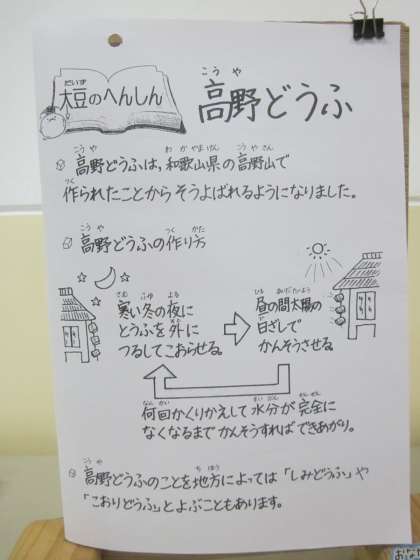 大豆のへんしん
高野どうふ
高野どうふは、和歌山県の高野山で
作られたことからそうよばれるようになりました。
高野どうふの作り方
寒い冬の夜に
とうふを外に
つるしてこおらせる。
昼の間太陽の
日ざしで
かんそうさせる
何回かくりかえして水分が完全に
なくなるまでかんそうすればできあがり。
高野どうふのことを地方によっては「しみどうふ」や
「こおりどうふ」とよぶこともあります。